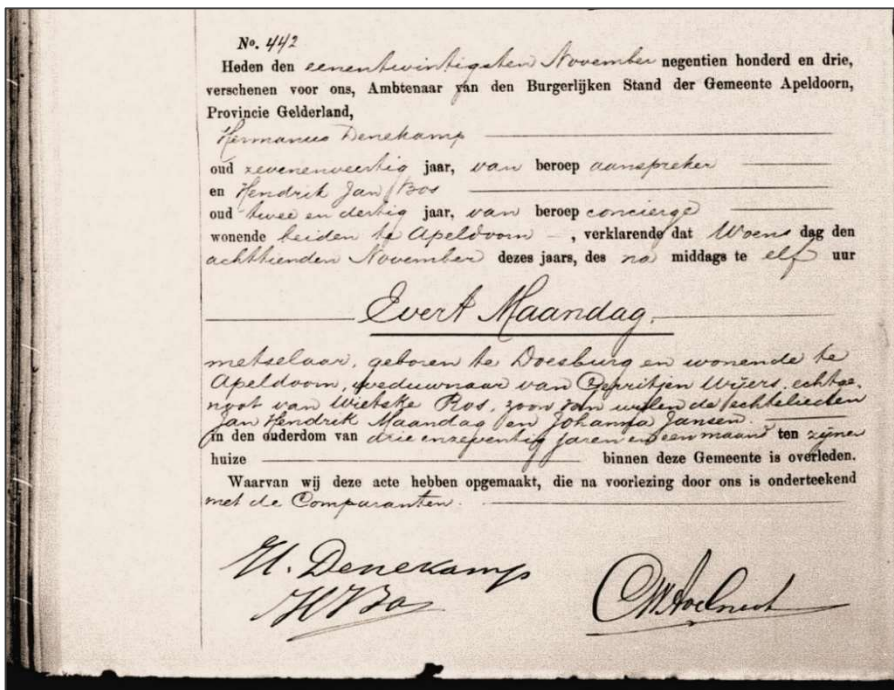 No. 442
Heden den eenentwintigsten November negentien honderd en drie,
verschenen voor ons, Ambtenaar van den Burgerlijken Stand der Gemeente Apeldoorn,
Provincie Gelderland,
Hermanus Denekamp
oud zevenenveertig jaar, van beroep aanspreker
en Hendrik Jan Bos
oud twee en dertig jaar, van beroep concierge
wonende beiden te Apeldoorn -, verklarende dat Woens dag den
achttienden November dezes jaars, des na middags te elf uur
Evert Maandag.
metselaar, geboren te Doesburg en wonende te
Apeldoorn, weduwnaar van Gerritjen Wijers, echtge-
noot van Wietske Ros, zoon van wijlen de echtelieden
Jan Hendrik Maandag en Johanna Jansen.
in den ouderdom van drie enzeventig jaren en een maand ten zijnen
huize binnen deze Gemeente is overleden.
Waarvan wij deze acte hebben opgemaakt, die na voorlezing door ons is onderteekend
met de Comparanten.
H. Denekamp
HJBos